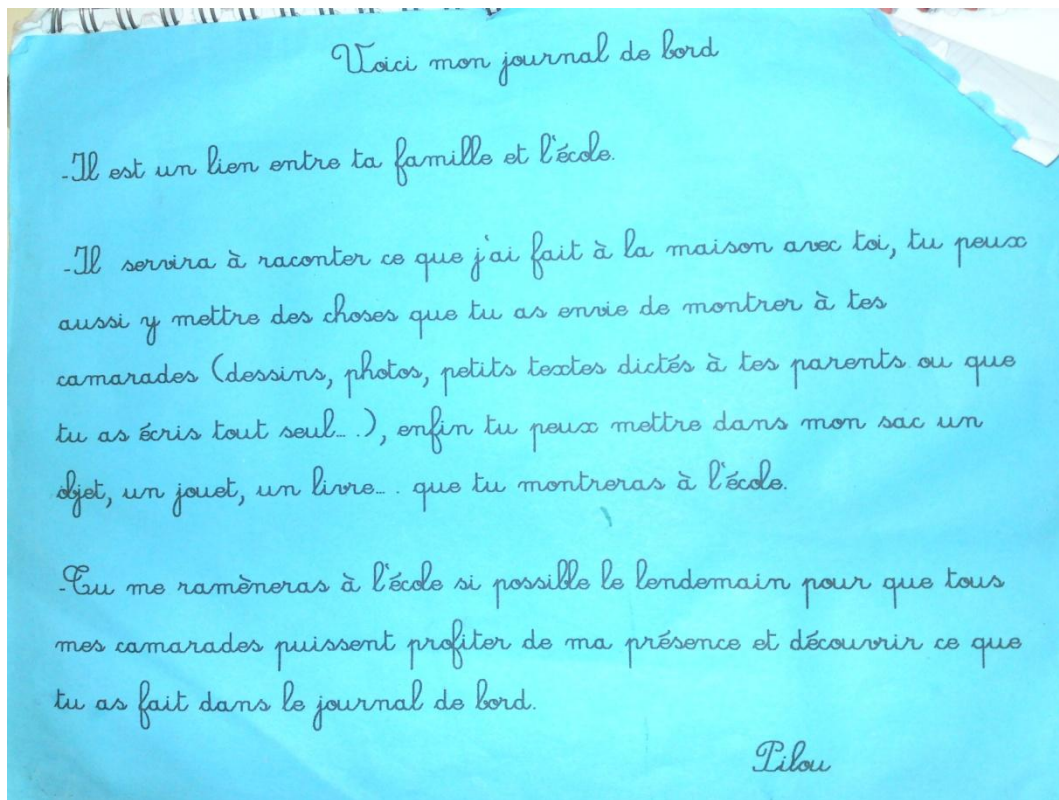 Voici mon journal de bord
-Il est un lien entre ta famille et l'école.
-Il servira à raconter ce que j'ai fait à la maison avec toi, tu peux
aussi y mettre des choses que tu as envie de montrer à tes
camarades (dessins, photos, petits textes dictés à tes parents ou que
tu as écris tout seul...), enfin tu peux mettre dans mon sac un
objet, un jouet, un livre... que tu montreras à l'école.
-Tu me ramèneras à l'école si possible le lendemain pour que tous
mes camarades puissent profiter de ma présence et découvrir ce que
tu as fait dans le journal de bord.
Pilou